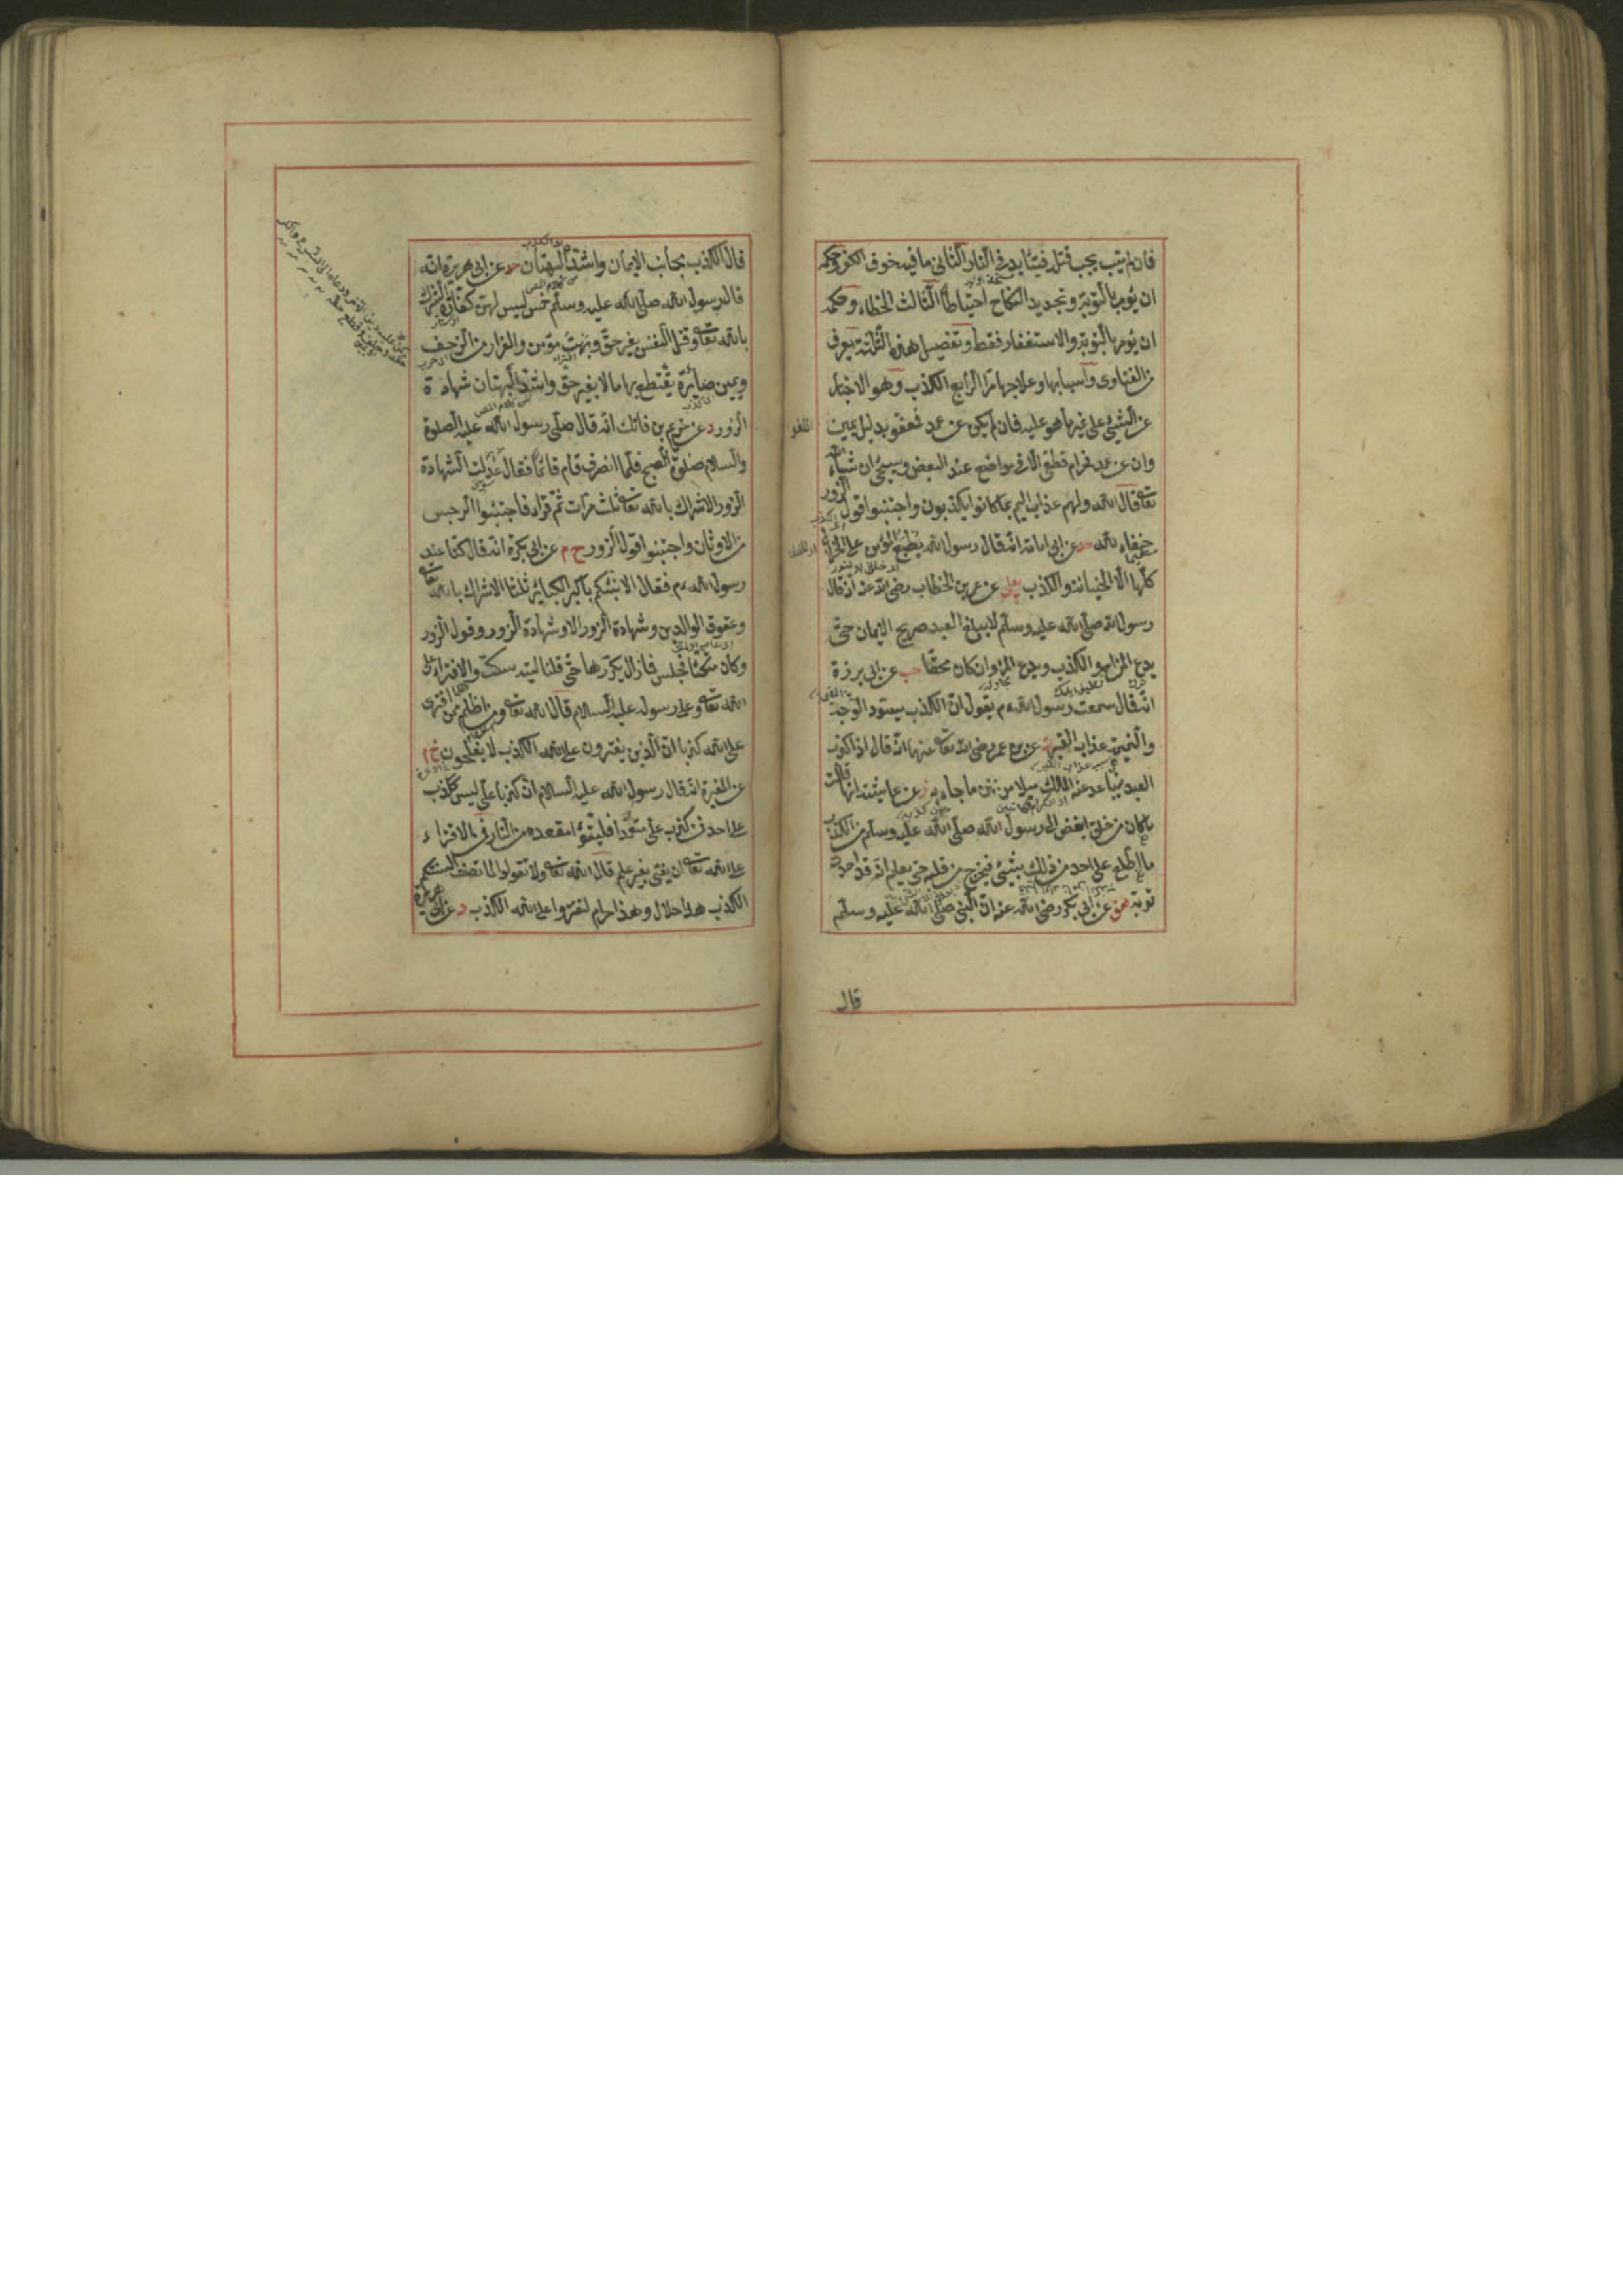 فان لم يتب يجب قتله فيتأبد في النار الثاني ما فيه خوف الكفر وحكمه
ان يؤمر بالتوبة وتجديد النكاح احتياطاً الثالث الخطاء وحكمه
ان يؤمر بالتوبة والاستغفار فقط وتفصيل هذه الثلثة يعرف
من الفتاوى واسبابها وعلاجها مرّ الرابع الكذب وهو الاخبار
عن الشيء على غير ما هو عليه فان لم يكن عن عمد فعفو بدليل يمين اللغو
وان عن عمد فحرام قطعى الا فى مواضع عند البعض وسيجئ ان شاء الله
تعالى قال الله ولهم عذاب اليم بما كانوا يكذبون واجتنبوا قول الزور
حنفاء لله حد عن ابى امامة انه قال رسول الله يطبع المؤمن على الخلال
كلها الا الخيانة والكذب يعلى عن عمر بن الخطاب رضى الله عنه انه قال
رسول الله صلى الله عليه وسلم لا يبلغ العبد صريح الايمان حتى
يدع المزاح والكذب ويدع المراء وان كان محقا حب عن ابى برزة
انه قال سمعت رسول الله م يقول ان الكذب يسود الوجه
والنميمة عذاب القبر ت عن بن عمر رضى الله تعالى عنهما انه قال اذا كذب
العبد يتباعد عنه الملك ميلا من نتن ما جاء به ز عن عايشة انها قالت
ما كان من خلق ابغض الى رسول الله صلى الله عليه وسلم من الكذب
ما اطلع على احد من ذلك بشئ فيخرج من قلبه حتى يعلم انه قد احدث
توبة هق عن ابى بكر رضى الله عنه ان النبى صلى الله عليه وسلم
قال
قال الكذب يجانب الايمان واشد البهتان حد عن ابى هريرة انه
قال رسول الله صلى الله عليه وسلم خمس ليس لهن كفارة الشرك
بالله تعالى وقتل النفس بغير حق وبهت مؤمن والفرار من الزحف
ويمين صابرة يقتطع بها مالا بغير حق واشد البهتان شهادة
الزور د عن خريم بن فاتك انه قال صلى رسول الله عليه الصلوة
والسلام صلوة الصبح فلما انصرف قام قائماً فقال عدلت الشهادة
الزور الاشراك بالله تعالى ثلث مرات ثم قراء فاجتنبوا الرجس
من الاوثان واجتنبوا قول الزور خ م عن ابى بكرة انه قال كنا عند
رسول الله م فقال الا انبئكم باكبر الكبائر ثلثا الاشراك بالله تعالى
وعقوق الوالدين وشهادة الزور الا وشهادة الزور وقول الزور
وكان متكئا فجلس فما زال يكررها حتى قلنا ليته سكت والافتراء على
الله تعالى وعلى رسوله عليه السلام قال الله تعالى ومن اظلم ممن افترى
على الله كذبا ان الذين يفترون على الله الكذب لا يفلحون خ م
عن المغيرة انه قال رسول الله عليه السلام ان كذبا علىّ ليس ككذب
على احد فمن كذب علىّ متعمدا فليتبوّأ مقعده من النار
على الله تعالى ان يفتى بغير علم قال الله تعالى ولا تقولوا لما تصف السنتكم
الكذب هذا حلال وهذا حرام لتفتروا على الله الكذب د عن ابى هريرة